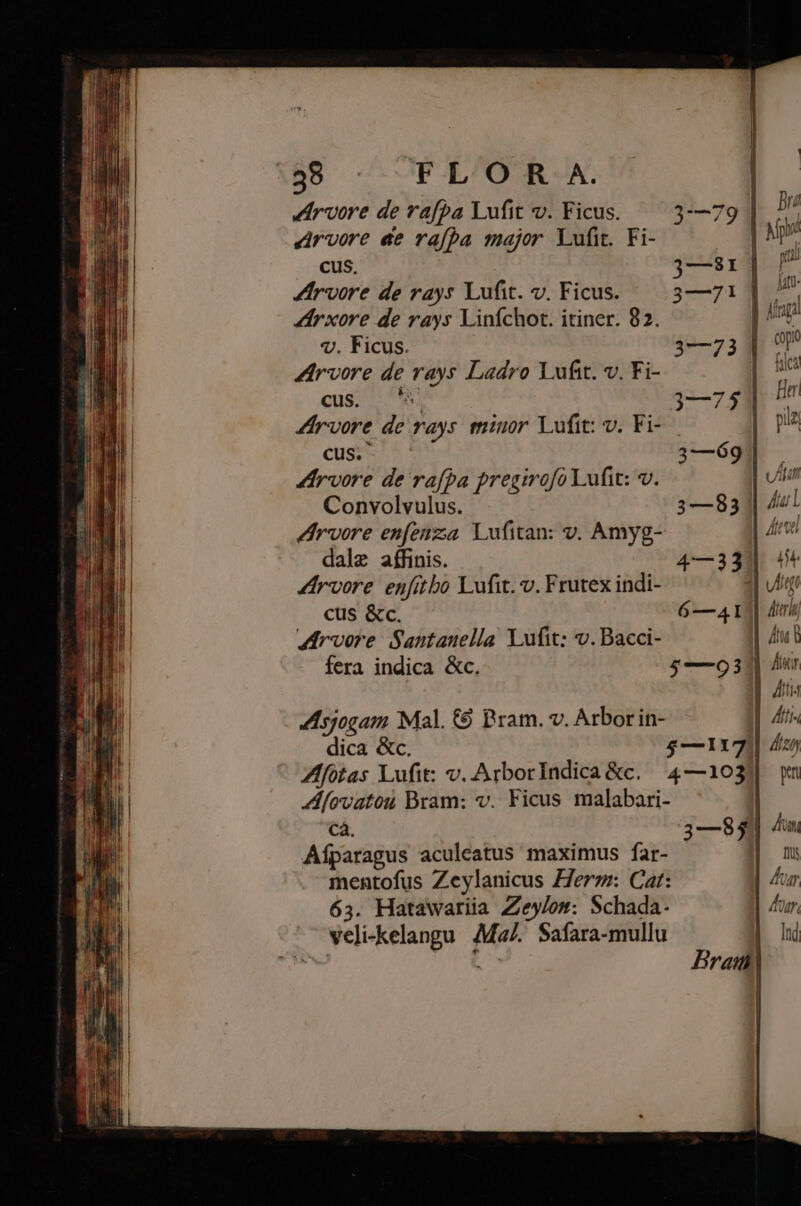 38 FLORA.
Arvore de raſpa Luſit v. Ficus. 3—79
Arvore de raſpa major Luſit. Fi-
cus. 3—81
Arvore de rays Luſit. v. Ficus. 3—71
Arxore de rays Linſchot. itiner. 82.
v. Ficus. 3—73
Arvore de rays Ladro Luſit. v. Fi-
cus. 3—75
Arvore de rays minor Luſit: v. Fi-
cus. 3—69
Arvore de raſpa pregiroſo Luſit: v.
Convolvulus. 3—83
Arvore enſenza Luſitan: v. Amyg-
dalæ affinis. 4—33
Arvore enſitho Luſit. v. Frutex indi-
cus &c. 6—41
Arvore Santanella Luſit: v. Bacci-
fera indica &c. 5—93
Asjogam Mal. & Bram. v. Arbor in-
dica &c. 5—117
Aſotas Luſit: v. Arbor Indica &c. 4—103
Aſovatou Bram: v. Ficus malabari-
cà. 3—85
Aſparagus aculeatus maximus ſar-
mentoſus Zeylanicus Herm: Cat:
63. Hatawariia Zeylon: Schada-
veli-kelangu Mal. Safara-mullu
Bram